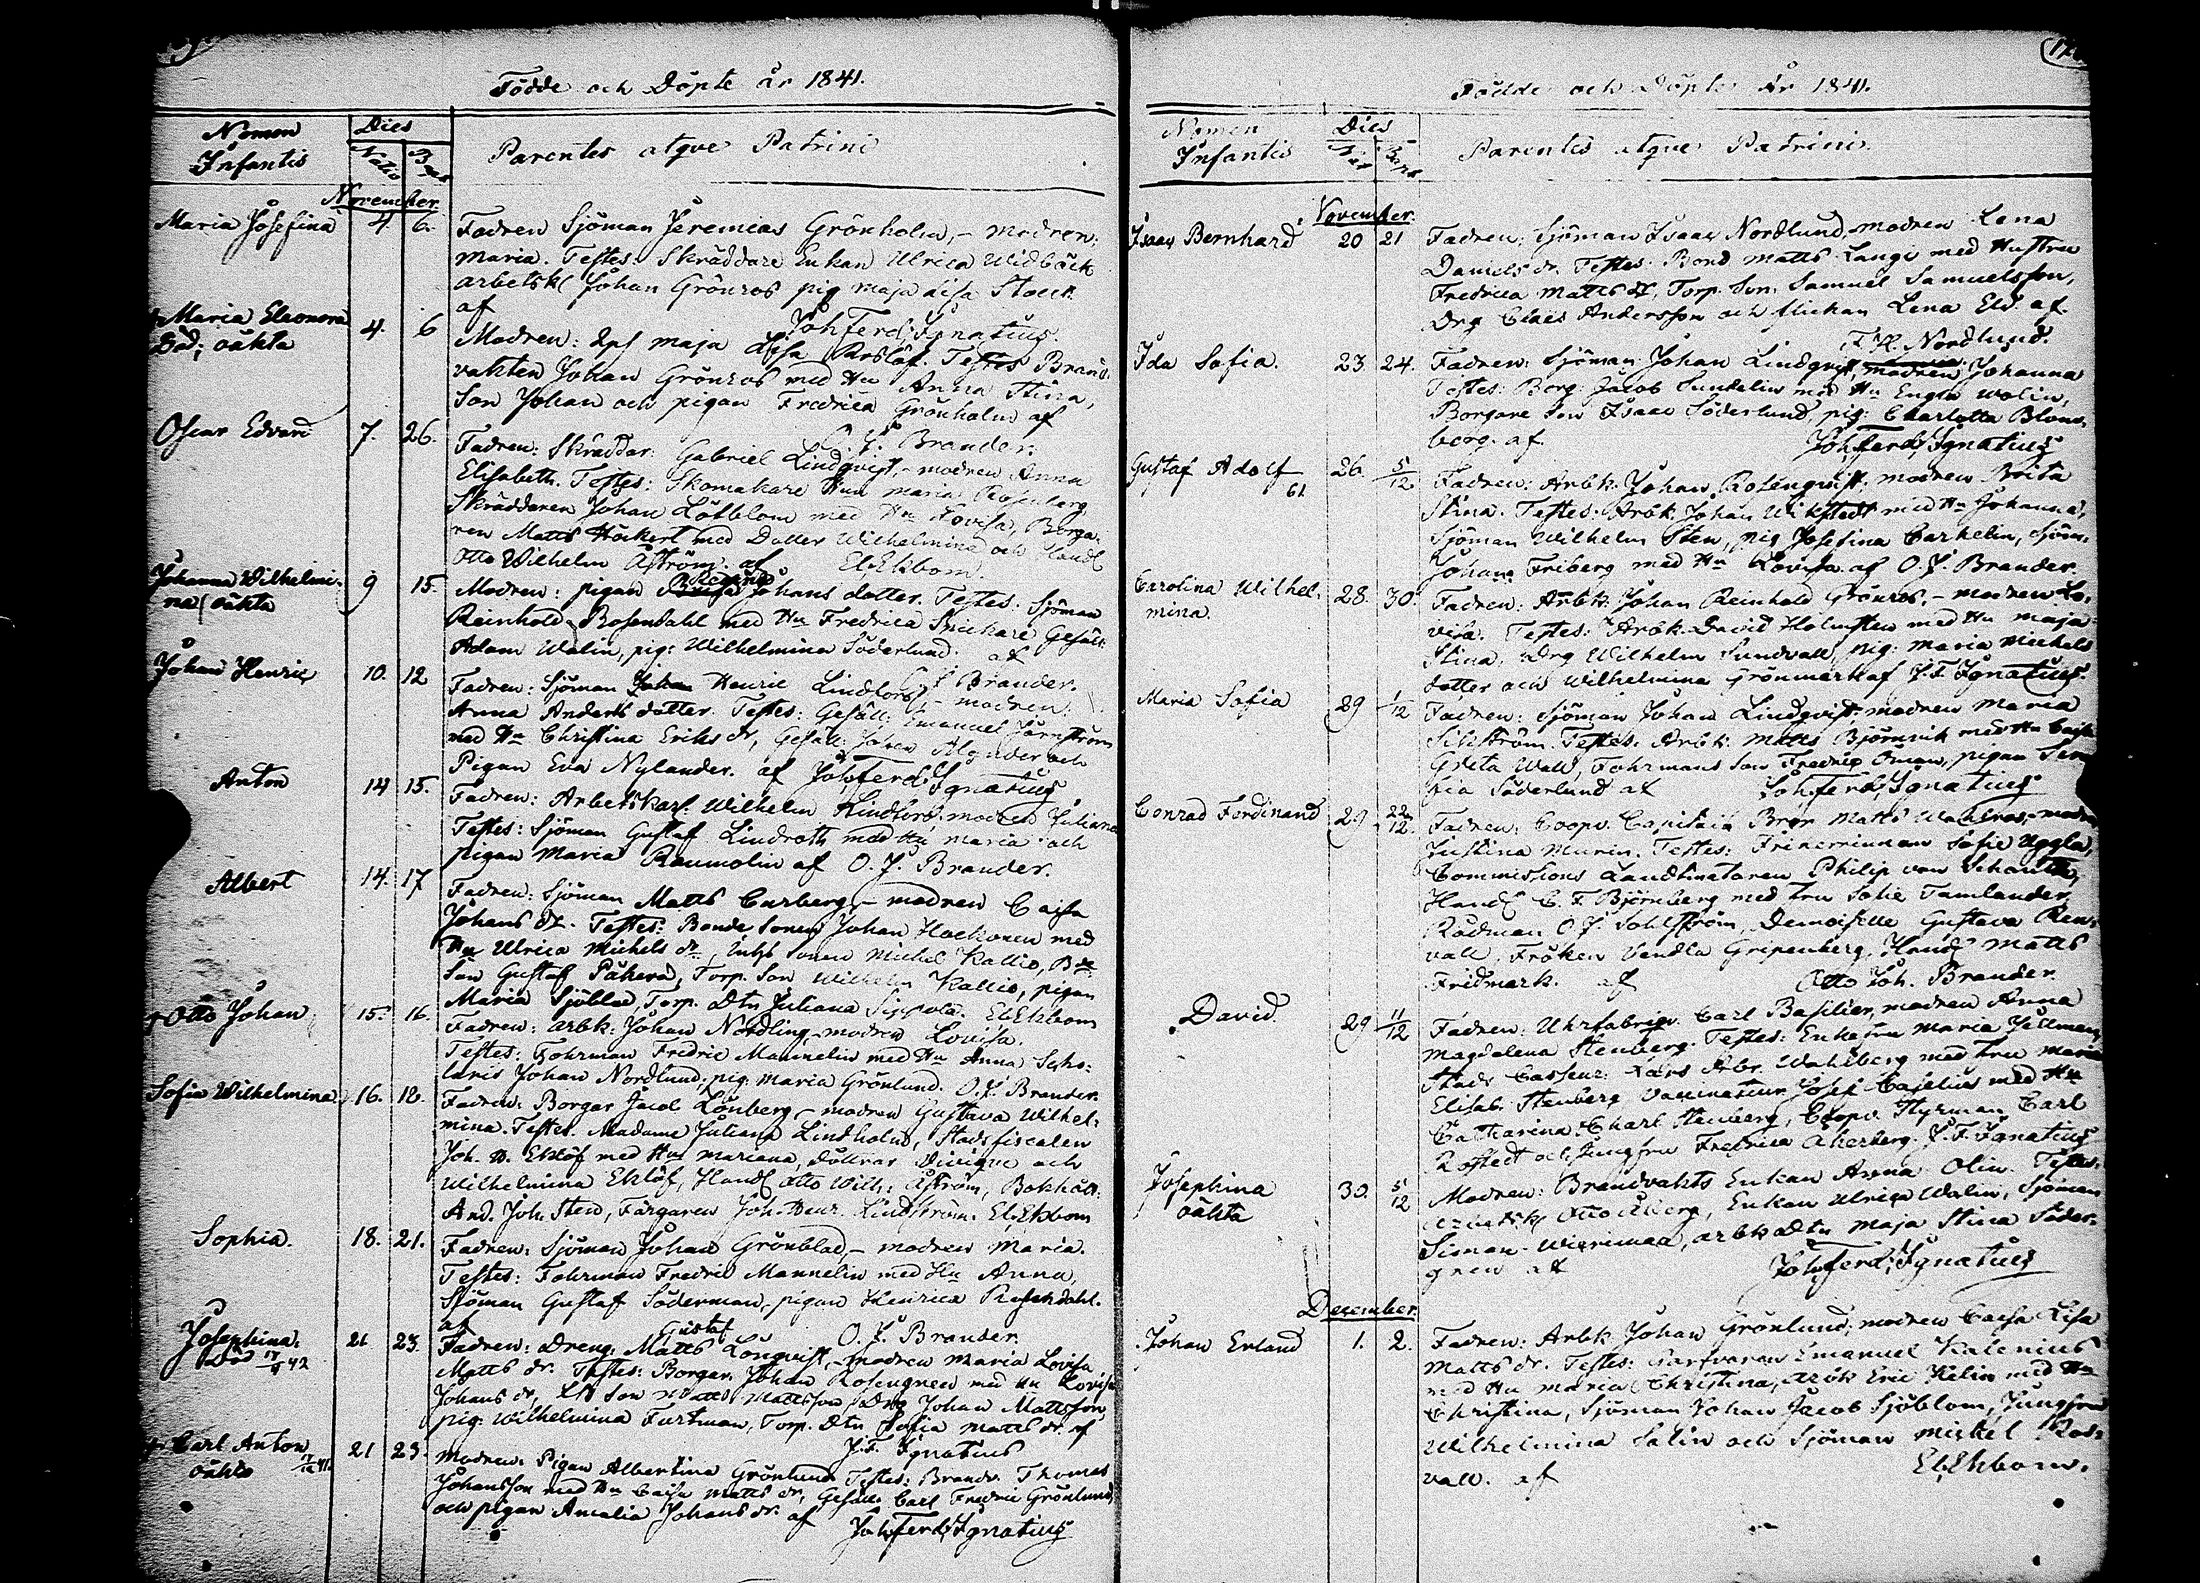 Födde och Döpte år 1841.
Nomen Infantis
Dies
Parentes atque Patrini
November.
Maria Josefina 4. 6. Fadren Sjöman Jeremias Grönholm, – modren:
Maria. Testes: Skräddare Enkan Ulrica Widbäck
arbetsk. Johan Grönros pig maja Lisa
af Joh Ferd: Ignatius.
Maria Eleonora 4. 6 Modren: maja Lisa Testes Brand-
Död; oäkta vakten Johan Grönros med Hu Anna Stina,
Son Johan och pigan Fredrica Grönholm af
O. J. Brander.
Oscar Edvard 7. 26. Fadren: Skräddar: Gabriel Lindqvist, – modren Anna
Elisabeth. Testes: Skomakare Hun maria Rosenberg
Skräddaren Johan Löfblom med Hu Lovisa, Borga-
ren Matts Höckert med Dotter Wilhelmina och Handl
Otto Wilhelm Åström. af El: Ekbom.
Johanna Wilhelmi- 9 15. Modren: pigan Johans dotter. Testes: Sjöman
na oäkta Reinhold Rosendahl med Hu Fredrica Snickare Gesäll:
Adam Walin, pig: Wilhelmina Söderlund. af
O. J. Brander.
Johan Henric 10. 12 Fadren: Sjöman Johan Henric Lindfors, – modren:
Anna Anders dotter. Testes: Gesäll: Emanuel Järnström
med Hu Christina Eriks dr, Gesäll: Johan och
Pigan Eva Nylander. af Joh Ferd: Ignatius
Anton 14 15. Fadren: Arbetskarl Wilhelm Lindfors. modren Juliana
Testes: Sjöman Gustaf Lindroth med Hu maria och
pigan Maria Raumolin af O. J. Brander.
Albert 14. 17 Fadren: Sjöman Matts Carberg, – modren Caisa
Johans dr. Testes: Bonde sonen Johan Hackonen med
Hu Ulrica Michels dr, sonen Michel Kallio,
Son Gustaf Torp. Son Wilhelm Kallio, pigan
Maria Sjöblad, Torp. Dtn Juliana El: Ekbom
Otto Johan 15. 16. Fadren: arbk: Johan Nordling, modren Lovisa.
Testes: Fohrman Fredric Mannelin med Hu Anna Scho-
laris Johan Nordlund, pig: Maria Grönlund. O. J. Brander.
Sofia Wilhelmina 16. 18. Fadren: Borgar Jacob Lönberg, – modren Gustava Wilhel-
mina. Testes. Madame Juliana Lindholm, Stadsfiscalen
Joh. Eklöf med Hu Mariana, döttrar och
Wilhelmina Eklöf, Handl Otto Wilh: Åström, Bokhåll:
And. Joh. Sten, Färgaren Joh. Henr. Lindström. El: Ekbom
Sophia. 18. 21. Fadren: Sjöman Johan Grönblad, – modren Maria.
Testes: Fohrman Fredric Mannelin med Hu Anna,
Sjöman Gustaf Söderman, pigan Henrica Rosendahl.
af O. J. Brander
Josephina. 21 23. Fadren: Dreng: Matts Gustaf Lönqvist, – modren Maria Lovisa
Död Matts dr. Testes: Borgar. Johan Rosengren med Hu Lovisa
Johans dr, son Matts Mattsson, Drg Johan Mattsson,
pig: Wilhelmina Furtman, Torp. Dtn Sofia Matts dr. af
J. F. Ignatius
Carl Anton 21 23. Modren: Pigan Albertina Grönlund Testes: Brandv. Thomas
oäkta Johansson med Hu Caisa Matts dr, Gesäll: Carl Fredric Grönlund,
och pigan Amalia Johans dr. af Joh Ferd: Ignatius
Födde och Döpte År 1841.
Nomen Infantis
Dies
Parentes atque Patrini.
November.
Isaac Bernhard 20 21 Fadren: Sjöman Isaac Nordlund, modren Lena
Daniels dr. Testes: Bond Matts Lange med Hustru
Fredrica Matts dr, Torp. Son: Samuel Samuelsson,
Drg Claes Andersson och flickan Lena af.
F. H. Nordlund.
Ida Sofia. 23 24. Fadren: Sjöman Johan Lindqvist, modren Johanna
Testes: Borg: Jacob Sundelin med Hu Engla Wolin,
Borgare Son Isaac Söderlund, pig: Charlotta Blom-
berg. af. Joh Ferd: Ignatius
Gustaf Adolf 26 5/12 Fadren: Arbk. Johan Rosenqvist. modren Brita
61 Stina. Testes: Arbk Johan Wikstedt med Hu Johanna,
Sjöman Wilhelm Sten, pig Josefina Sjöm:
Johan Friberg med Hu Lovisa. af O. J. Brander.
Carolina Wilhel- 28. 30. Fadren: Arbk: Johan Reinhold Grönros, – modren Lo-
mina. visa. Testes: Arbk David Holmsten med Hu maja
Stina, Drg Wilhelm Sundvall, pig: Maria Michels
dotter och Wilhelmina Grönmark af J. F. Ignatius.
Maria Sofia 29 1/12 Fadren: Sjöman Johan Lindqvist, modren Maria
Silfström. Testes: Arbk: Matts Björnvik med Hu
Greta Wall, Fohrmans Son Fredric Öman, pigan
Söderlund af Joh Ferd: Ignatius
Conrad Ferdinand 29 22/12. Fadren: Coopv. Capitain Matts modren
Justina Murin. Testes: Friherrinnan Sofie Uggla,
Commissions Landtmätaren Philip von Schantz,
Handl C. F. Björnberg med fru Sofie Tamlander,
Rådman O. J. Sohlström, Demoiselle Gustava Ren-
vall, Fröken Vendla Gripenberg, Handl Matts
Fridmark. af Otto Joh. Brander.
David 29 11/12 Fadren: Uhrfabriqv. Carl Basilier, modren Anna
Magdalena Stenberg. Testes: Enkefru Maria
Stads Casseur: Lars Abr. Wahlberg med fru Maria
Elisab. Stenberg Vaccinateur Josef med Hu
Catharina Charl Stenberg, Coopv. Styrman Carl
Rostedt och Jungfru Fredrica Åkerberg. J. F. Ignatius
Josephina 30. 5/12 Modren: Brandvakts Enkan Anna Olin. Testes:
oäkta Otto Åberg, Enkan Ulrica Walin, Sjöman
Simon Wierimaa, arbk Dtn Maja Stina Söder-
gren af Joh Ferd: Ignatius
December.
Johan Erland 1. 2. Fadren: Arbk. Johan Grönlund, modren Caisa Lisa
Matts dr. Testes: Garfvaren Emanuel
med Hu Maria Christina, Arbk Eric Helin med Hu
Christina, Sjöman Johan Jacob Sjöblom, Jungfru
Wilhelmina Salin och Sjöman Michel Ros-
vall. af El: Ekbom.